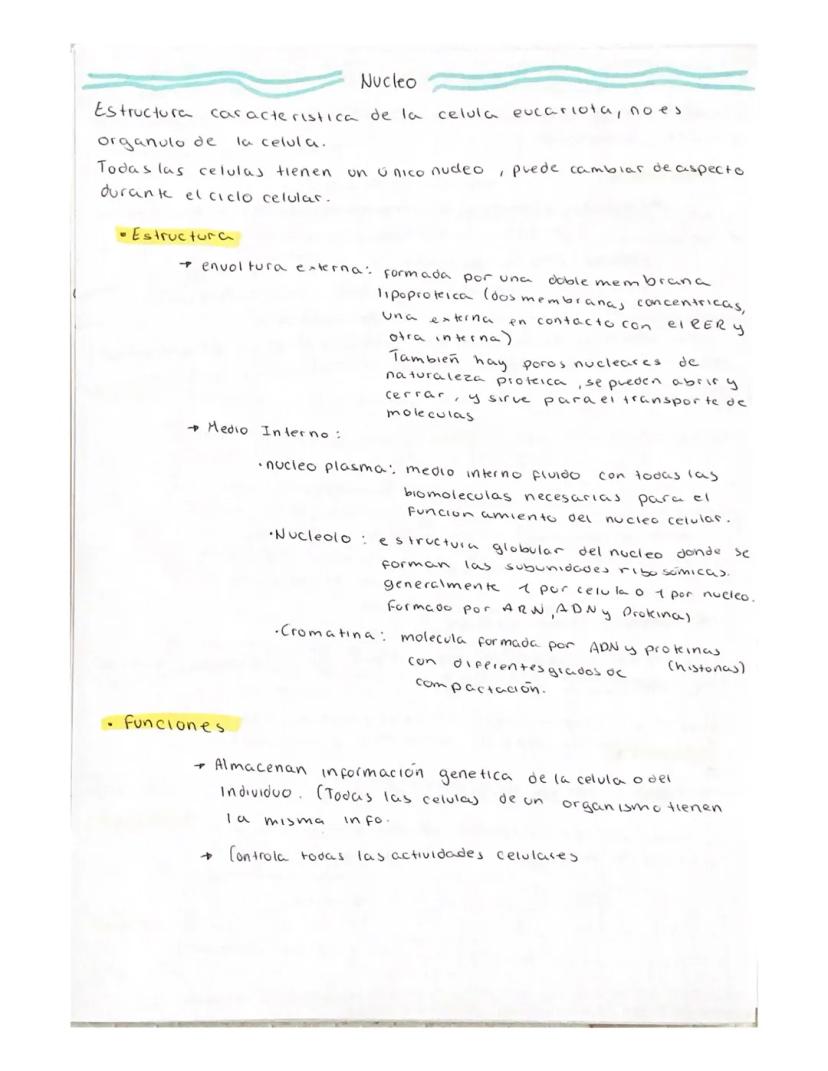 Nucleo
Estructura caracteristica de la celula eucariota, no es
organulo de la celula.
Todas las celulas tienen un único nucleo, puede cambiar de aspecto
durante el ciclo celular.
• Estructura
→ envoltura externa: formada por una doble membrana
lipoproteica (dos membranas concentricas,
una externa en contacto con el RER y
otra interna)
También hay poros nucleares de
naturaleza proteica, se pueden abrir y
cerrar, y sirve para el transporte de
moleculas
→ Medio Interno:
· nucleo plasma: medio interno fluido con todas las
biomoleculas necesarias para el
funcionamiento del nucleo celular.
· Nucleolo: estructura globular del nucleo donde se
forman las subunidades ribosómicas.
generalmente 1 por celula o 1 por nucleo.
Formado por ARN, ADN y Proteinas
· Cromatina: molecula formada por ADN y proteinas
con diferentes grados de (histonas)
compactación.
• Funciones
→ Almacenan información genetica de la celula o del
Individuo. (Todas las celulas de un organismo tienen
la misma info.
→ Controla todas las actividades celulares